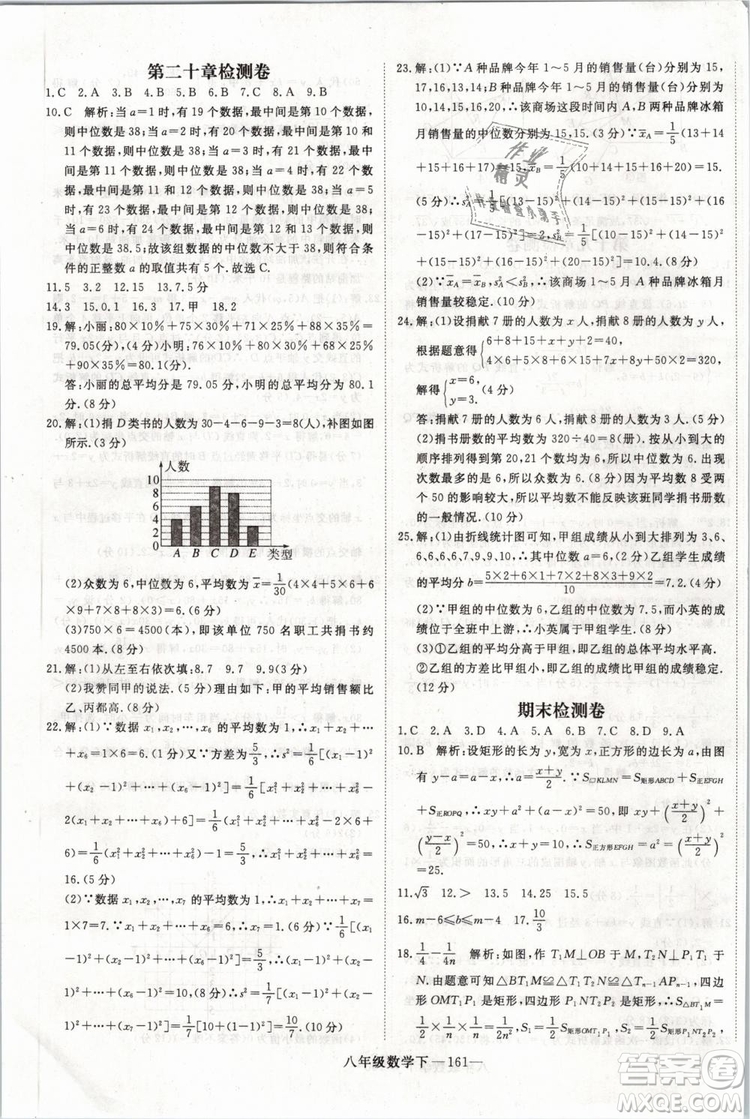 第二十章检测卷
1.C 2.A 3.B 4.B 5.B 6.C 7.C 8.A 9.B
10.C 解析:当a=1时,有19个数据,最中间是第10个数据,
则中位数是38;当a=2时,有20个数据,最中间是第10和
11个数据,则中位数是38;当a=3时,有21个数据,最中间
是第11个数据,则中位数是38;当a=4时,有22个数据,
最中间是第11和12个数据,则中位数是38;当a=5时,
有23个数据,最中间是第12个数据,则中位数是38;当a=6
时,有24个数据,最中间是第12和13个数据,则中位
数是38.5;故该组数据的中位数不大于38,则符合条
件的正整数a的取值共有5个.故选C.
11.5 12.15 13.7.5分
14.3 15.0.1 16.17 17.甲 18.2
19.解:小丽:80×10%+75×30%+71×25%+88×35%=
79.05(分),(4分)小明:76×10%+80×30%+70×25%
+90×35%=80.1(分).
答:小丽的总平均分是79.05分,小明的总平均分是80.1
分.(8分)
20.解:(1)捐D类书的人数为30-4-6-9-3=8(人),补图如图
所示.(3分)
人数
10
8
6
5
4
3
2
1
0
A B C D E 类型
(2)众数为6,中位数为6,平均数x̄=1/30(4×4+5×6+6
×9+7×8+8×3)=6.(6分)
(3)750×6=4500(本),即该单位750名职工共捐书约
4500本.(8分)
21.解:(1)从左至右依次填:8.7 9.7 9.9(3分)
(2)我赞同甲的说法.(5分)理由:甲的平均销售额比
乙、丙都高.(8分)
22.解:(1)∵数据x₁,x₂,…,x₆的平均数为1,∴x₁+x₂+…+x₆
=1×6=6.(3分)又∵方差为5/3,∴s²=1/6[(x₁-1)²+
(x₂-1)²+…+(x₆-1)²]=1/6[x₁²+x₂²+…+x₆²-
2(x₁+x₂+…+x₆)+6]=1/6(x₁²+x₂²+…+x₆²-2×6+
6)=1/6(x₁²+x₂²+…+x₆²)-1=5/3,∴x₁²+x₂²+…+x₆²=
16.(5分)
(2)∵数据x₁,x₂,…,x₇的平均数为1,∴x₁+x₂+…+x₇=
1×7=7.(6分)∵x₁+x₂+…+x₆=6,∴x₇=1.∵1/6[(x₁-1)²
+(x₂-1)²+…+(x₆-1)²]=5/3,∴(x₁-1)²+(x₂-1)²+
…+(x₆-1)²=10,(8分)∴s²=1/7[(x₁-1)²+(x₂-1)²+…+
(x₇-1)²]=1/7[10+(1-1)²]=10/7.(10分)
23.解:(1)∵A种品牌今年1~5月的销售量(台)分别为15,
17,16,13,14,B种品牌今年1~5月的销售量(台)分别为
10,14,15,20,16,∴该商场这段时间内A,B两种品牌冰箱
月销售量的中位数分别为15,15.∵x̄A=1/5(13+14
+15+16+17)=15,x̄B=1/5(10+14+15+16+20)=15.
(5分)∴s²A=1/5[(13-15)²+(14-15)²+(15-15)²+
(16-15)²+(17-15)²]=2,s²B=1/5[(10-15)²+(14-15)²
+(15-15)²+(16-15)²+(20-15)²]=10.4.(8分)
(2)∵x̄A=x̄B,s²A<s²B,∴该商场1~5月A种品牌冰箱月
销售量较稳定.(10分)
24.解:(1)设捐献7册的人数为x人,捐献8册的人数为y人,
根据题意得{6+8+15+x+y+2=40, 4×6+5×8+6×15+7x+8y+50×2=320,
解得{x=6, y=3.(4分)
答:捐献7册的人数为6人,捐献8册的人数为3人.(5分)
(2)捐书册数的平均数为320÷40=8,(6分)按从小到大的
顺序排列得到第20,21个数均为6,所以中位数为6.(7分)
出现次数最多的是6,所以众数为6.(8分)因为平均数8受两
个50的影响较大,所以平均数不能反映该班同学捐书册数
的一般情况.(10分)
25.解:(1)由折线统计图可知,甲组成绩从小到大排列为3,
6,6,6,6,6,7,9,9,10,∴其中位数a=6,(3分)乙组学生成绩
的平均分b=(5×2+6×1+7×2+8×3+9×2)/10=7.2.(4分)
(2)∵甲组的中位数为6分,乙组的中位数为7.5分,而小英的成
绩位于全班中上游,∴小英属于甲组学生.(8分)
(3)①乙组的平均分高于甲组,即乙组的总体平均水平
高;②乙组的方差比甲组小,即乙组的成绩比甲组的成绩稳定.
(12分)
期末检测卷
1.C 2.A 3.D 4.A 5.B 6.C 7.C 8.D 9.A
10.B 解析:设矩形的长为y,宽为x,正方形的边长为a,由题意
得y-a=a-x,∴a=(x+y)/2.又∵S□KLMN=S矩形ABCD+S正EFGH
+S正ROPQ,∴xy+a²+(a-x)²=50,即xy+((x+y)/2)²+
((y-x)/2)²=50,∴((x+y)/2)²=25.∴S正方形EFGH=a²=((x+y)/2)²
=25.
11.√3 12.> 13.5 14.25 15.5
16.m-6≤b≤m-4 17.10/3
18.1/4 1/4ⁿ 解析:如图,作T₁M⊥OB于M,T₁N⊥P₁T₂于
N.由题意可知△BT₁M≌△T₁AP₁≌△T₁T₂N,四边
形OMT₁P₁是矩形,四边形P₁NT₂P₂是矩形,∴S△BT₁M=
1/2×1/n×1/n=1/2n²,S₁=1/2S矩形OMT₁P₁,S₂=1/2S矩形P₁NT₂P₂,
八年级数学下—161—
作业
精灵
MXQE.COM